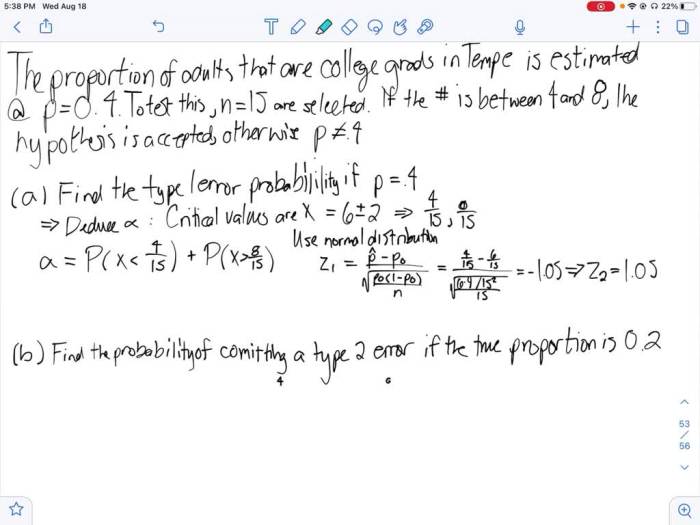 5:38 PM Wed Aug 18
22%
The proportion of adults that are college grads in Tempe is estimated
@ p=0.4. To test this, n=15 are selected. If the # is between 4 and 8, the
hypothesis is accepted, otherwise p≠.4
(a) Find the type 1 error probability if p=.4
⇒ Deduce α : Critical values are X = 6±2 ⇒ 4/15, 8/15
Use normal distribution
α = P(x < 4/15) + P(x > 8/15) Z₁ = (p̂ - p₀)/√(p₀(1-p₀)/n) =
= -1.05 ⇒ Z₂ = 1.05
(b) Find the probability of comitting a type 2 error if the true proportion is 0.2
4
53
/
56